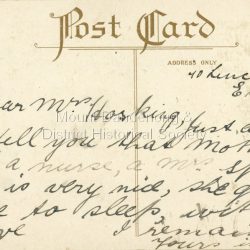 Post Card
ADDRESS ONLY
40
ear Mrs Hosking, Just a
tell you that Mo
a nurse, a Mrs Sp
is very nice, she g
to sleep wi
I remain
Yours
Mount Dandenong &
District Historical Society